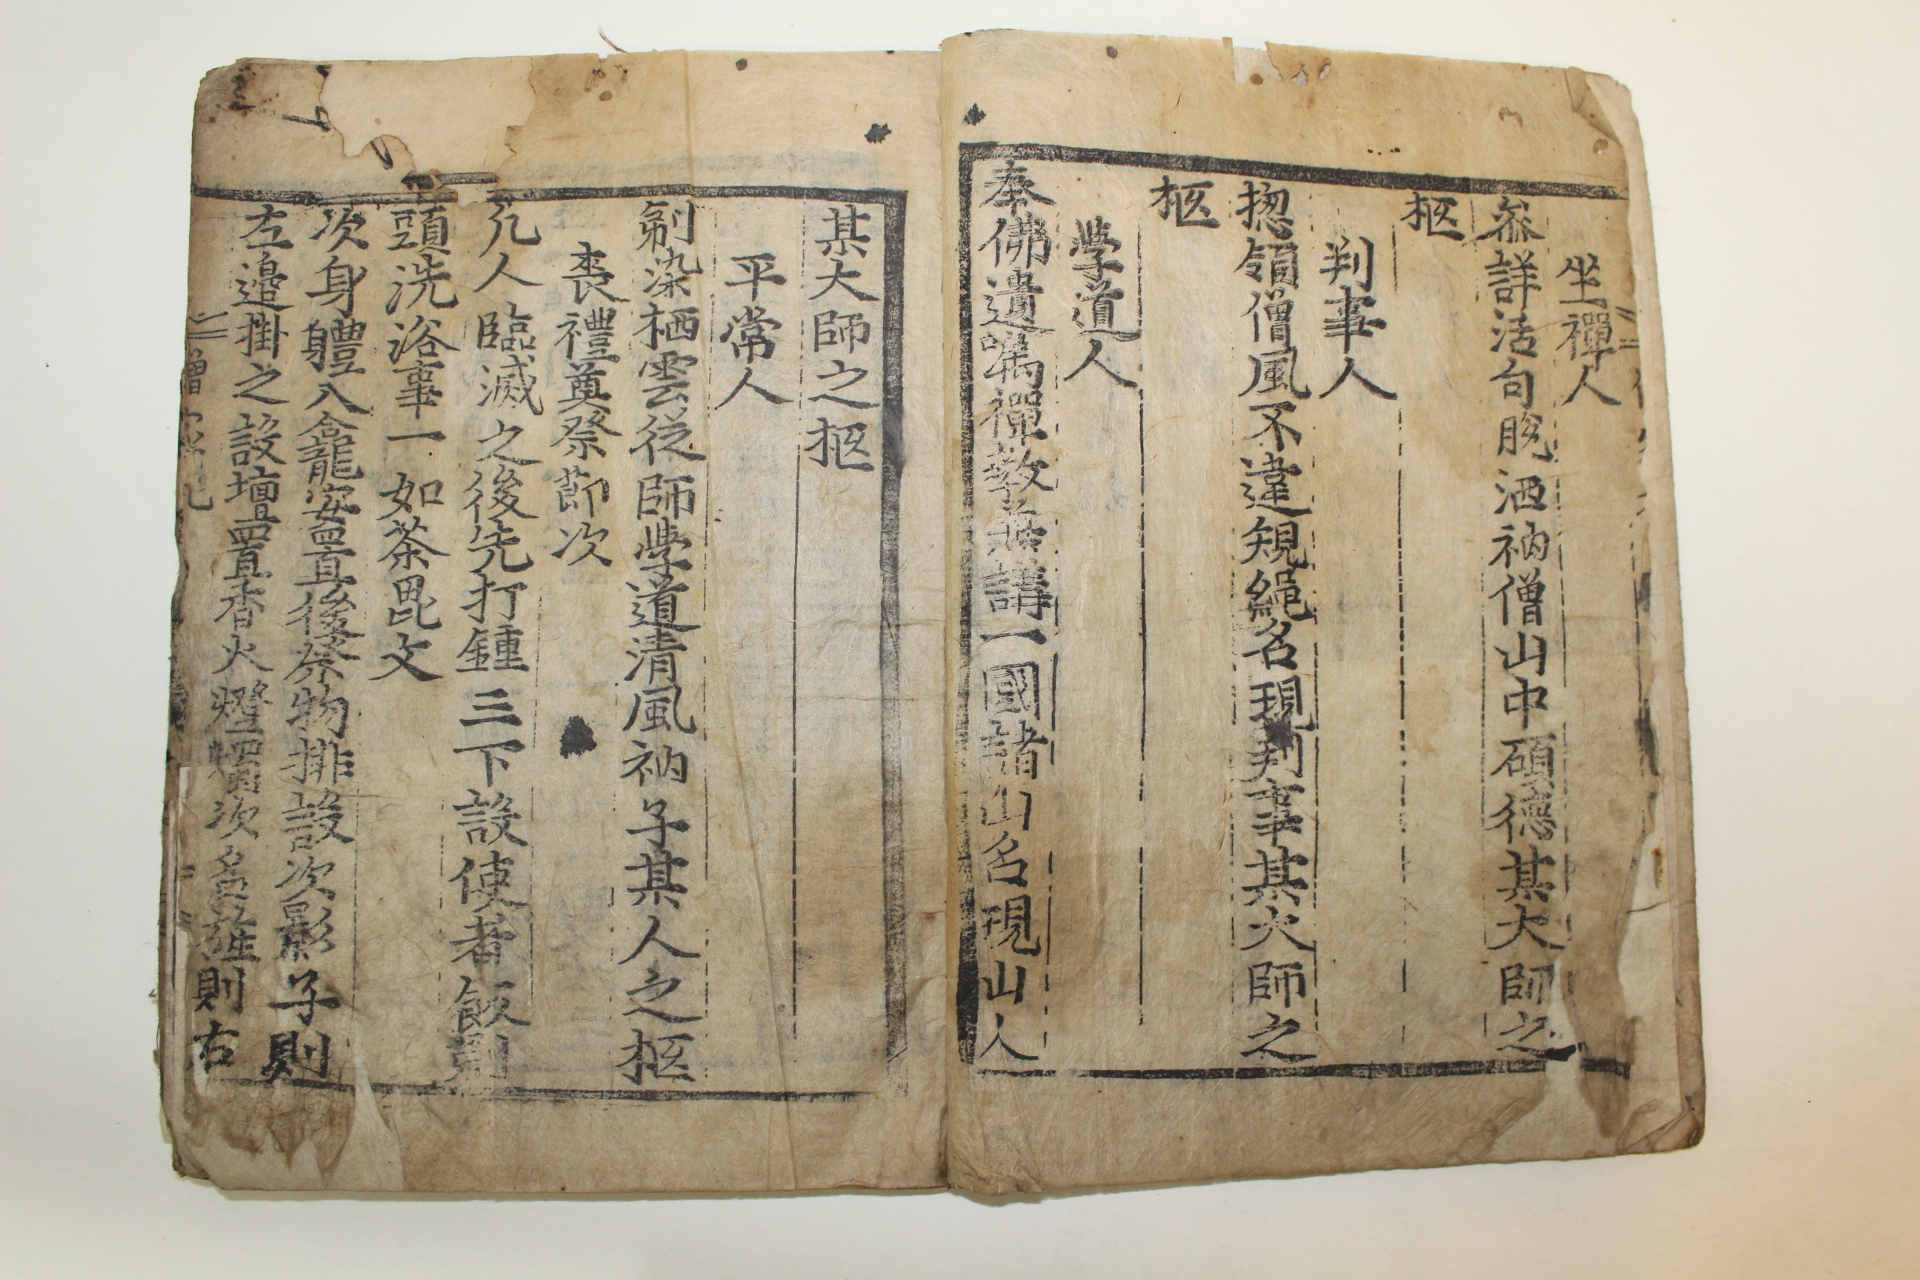 坐禪人
叅詳活句脫洒衲僧山中碩德某大師之
柩
判事人
揔領僧風不違規繩名現判事某大師之
柩
學道人
奉佛遺囑禪教兼講一國諸山名現山人
某大師之柩
平常人
剃染栖雲從師學道清風衲子某人之柩
喪禮奠祭節次
凡人臨滅之後先打鍾三下設使者飯剃
頭洗浴事一如茶毗文
次身體入龕安置後祭物排設次影子則
左邊掛之設壇置香火燈燭次名旌則右
僧